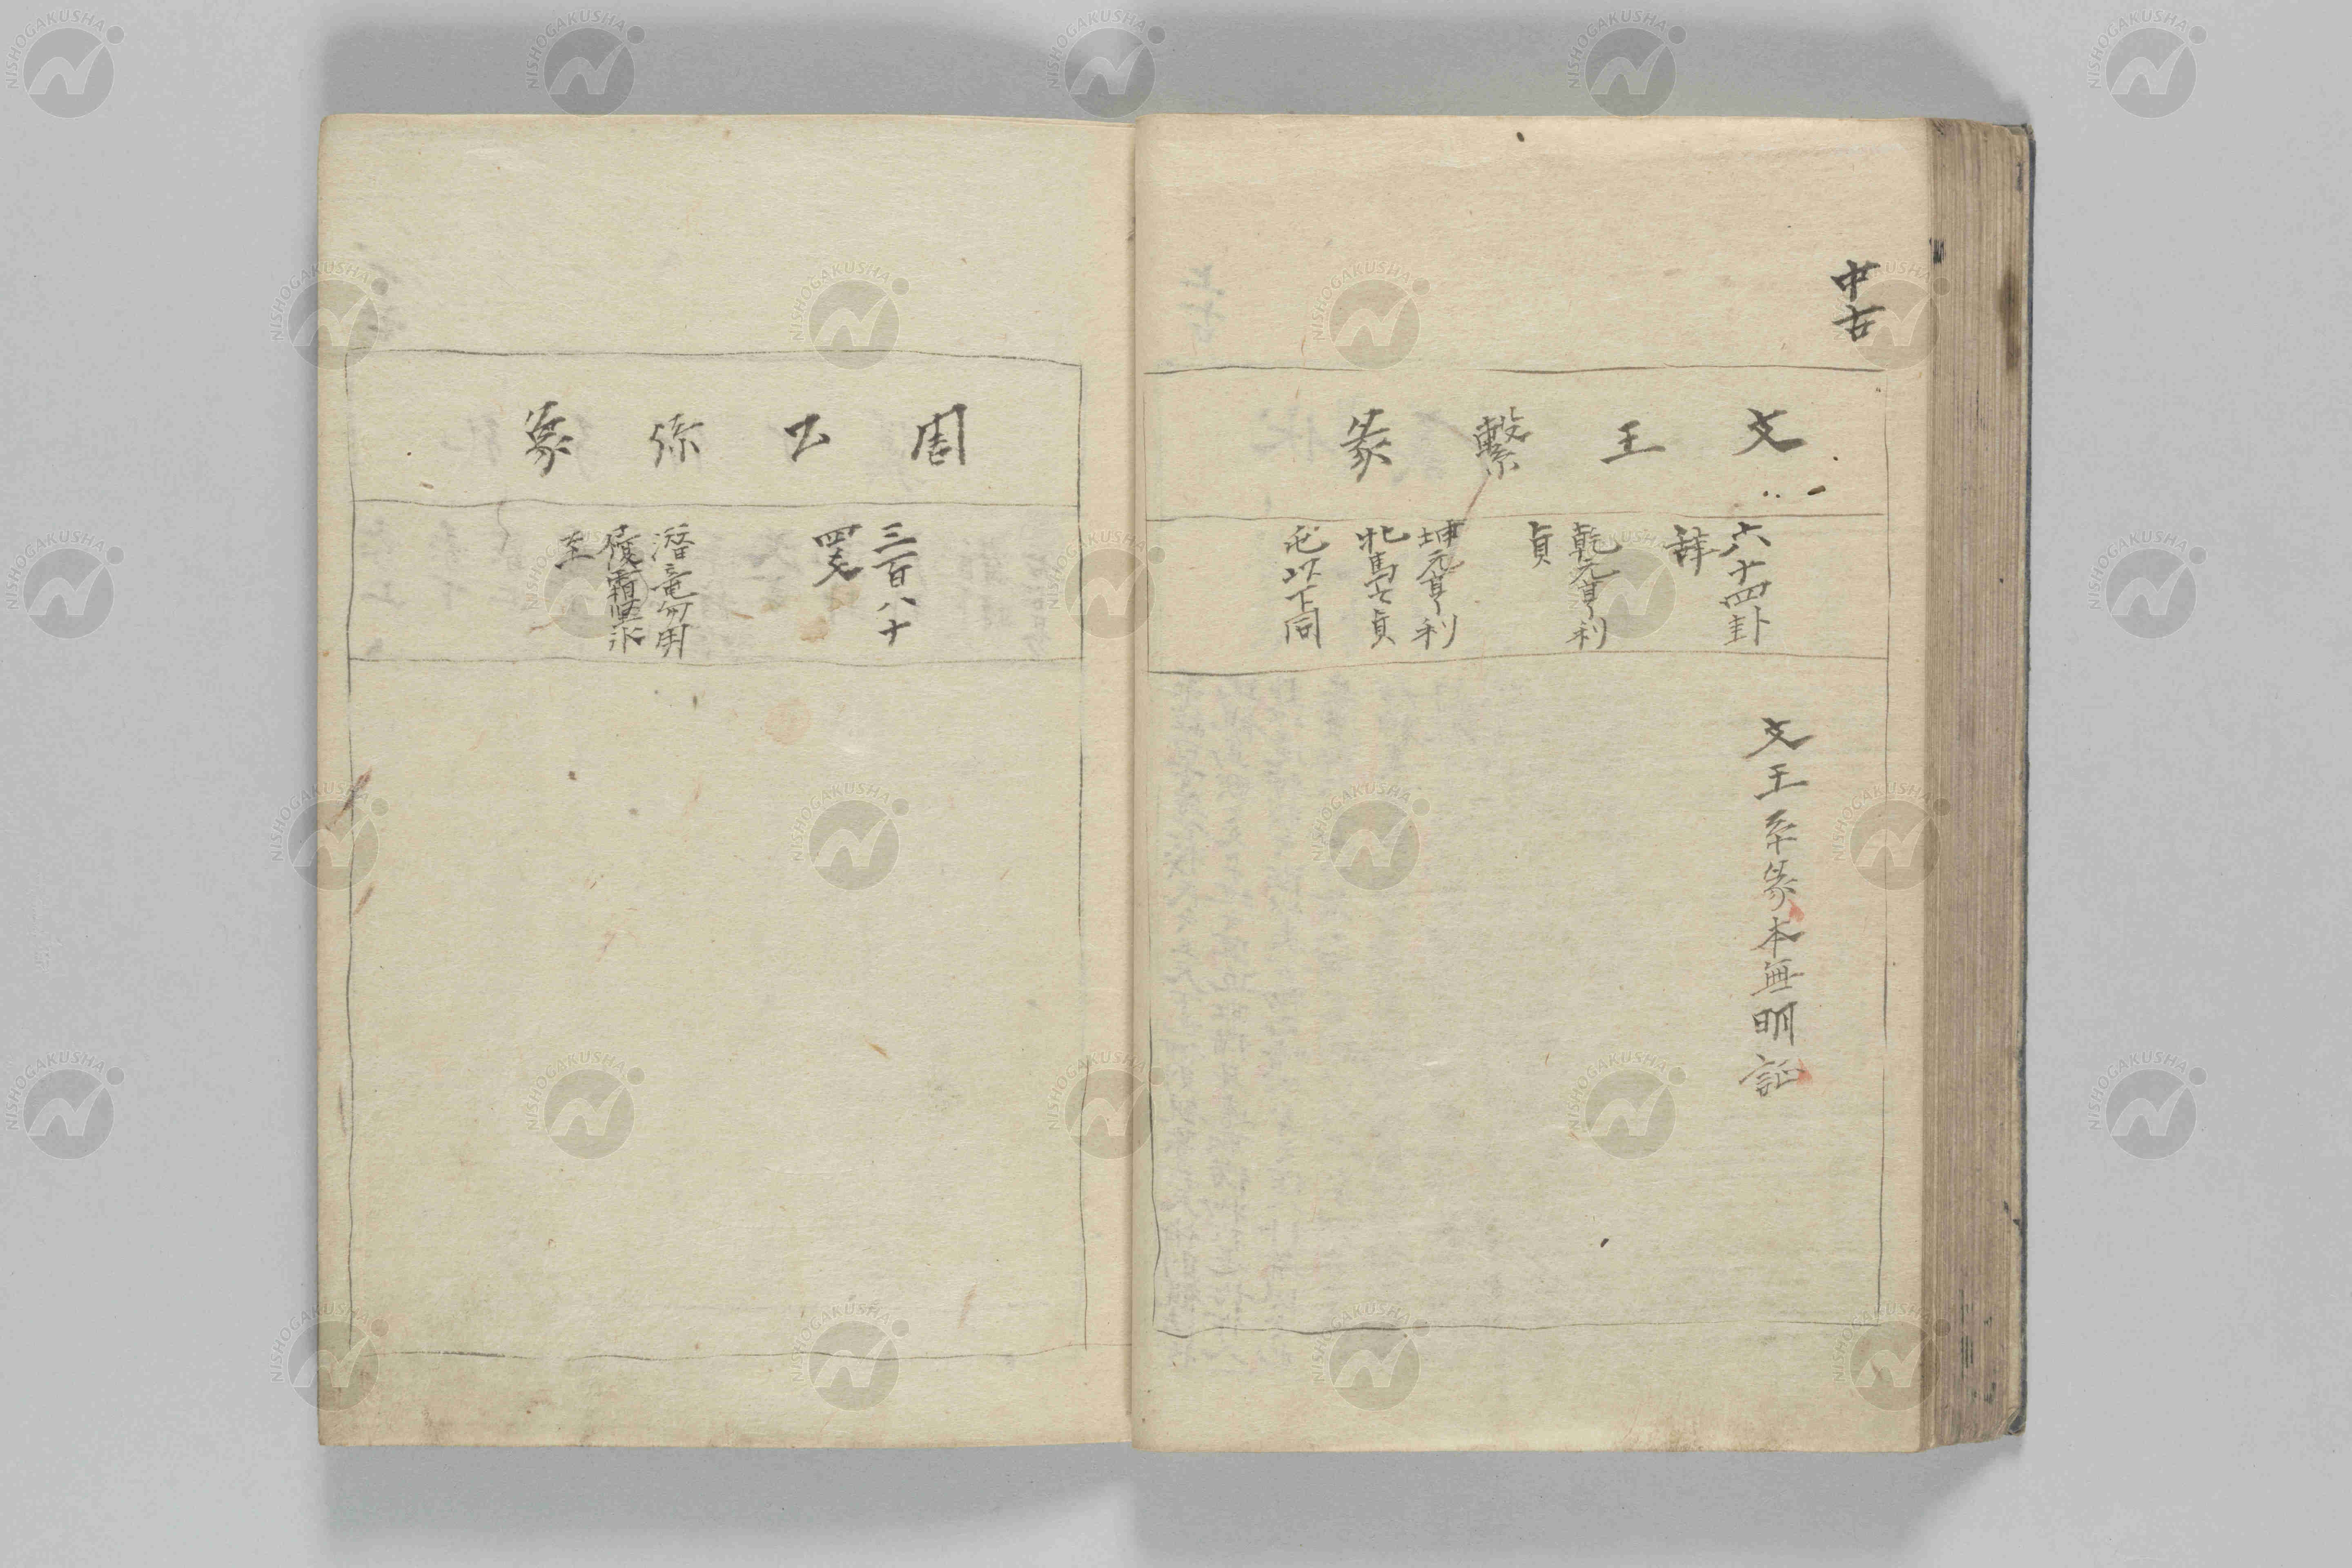 中古
文王繫彖
六十四卦
辭
乾元亨利
貞
坤元亨利
牝馬之貞
已下同
文王系彖本無明証
周公
象
三百八十
四爻
潜竜勿用
履霜堅氷
至
NISHOGAKUSHA